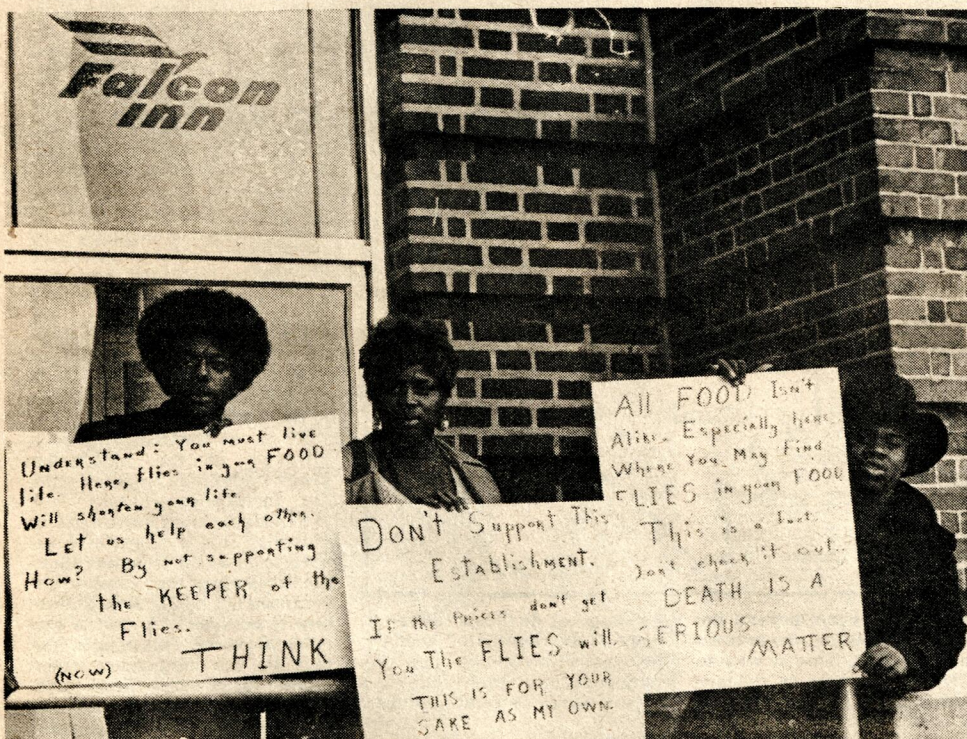 Falcon
Inn
UNDERSTAND: YOU must live
life. Here, flies in your FOOD
Will shorten your life.
LET us help each other.
How? By not supporting
the KEEPER of the
Flies.
(NOW) THINK
DON'T Support This
Establishment.
IF the Prices don't get
You The FLIES will.
THIS IS FOR YOUR
SAKE AS MY OWN.
All FOOD Isn't
Alike. Especially here.
Where You May Find
FLIES in your FOOD
This is a fact.
Don't check it out.
DEATH IS A
SERIOUS
MATTER